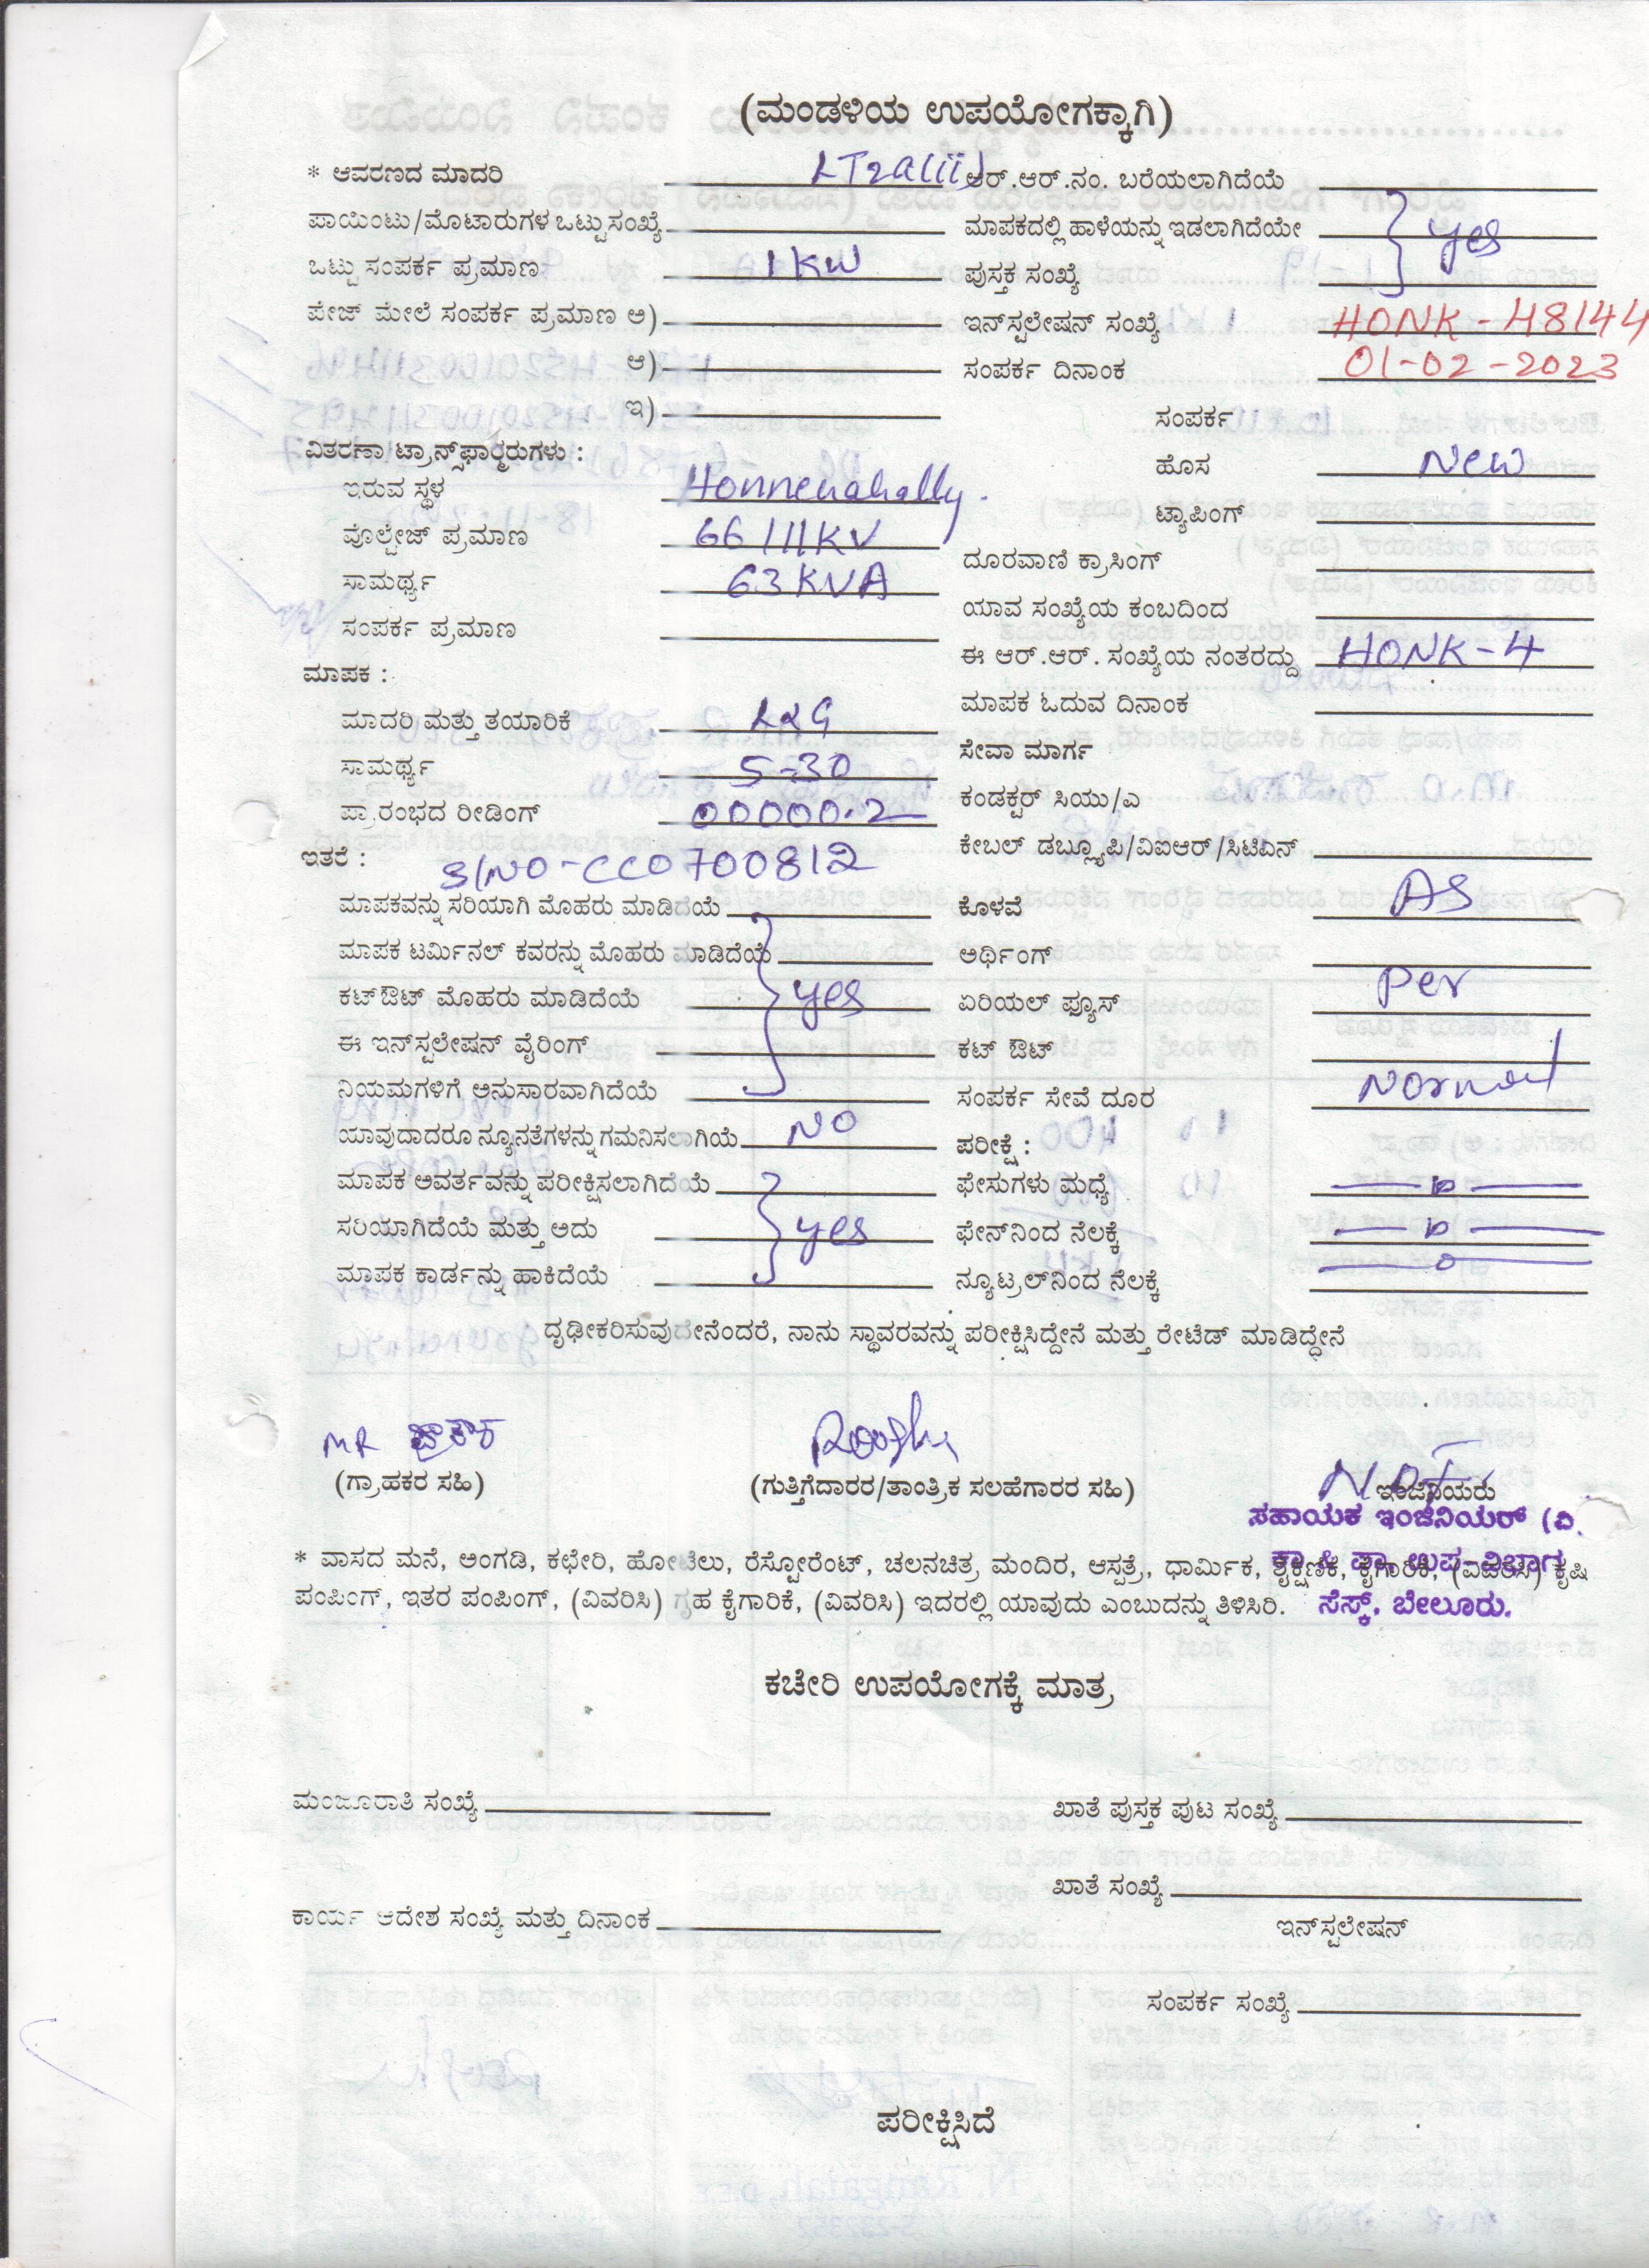 (ಮಂಡಳಿಯ ಉಪಯೋಗಕ್ಕಾಗಿ)
* ಆವರಣದ ಮಾದರಿ LT2a(iii) ಆರ್.ಆರ್.ನಂ. ಬರೆಯಲಾಗಿದೆಯೆ
ಪಾಯಿಂಟು/ಮೊಟಾರುಗಳ ಒಟ್ಟು ಸಂಖ್ಯೆ ಮಾಪಕದಲ್ಲಿ ಹಾಳೆಯನ್ನು ಇಡಲಾಗಿದೆಯೇ yes
ಒಟ್ಟು ಸಂಪರ್ಕ ಪ್ರಮಾಣ 1KW ಪುಸ್ತಕ ಸಂಖ್ಯೆ
ಪೇಜ್ ಮೇಲೆ ಸಂಪರ್ಕ ಪ್ರಮಾಣ ಅ) ಇನ್‌ಸ್ಟಲೇಷನ್ ಸಂಖ್ಯೆ HONK-48144
ಆ) ಸಂಪರ್ಕ ದಿನಾಂಕ 01-02-2023
ಇ) ಸಂಪರ್ಕ
ವಿತರಣಾ ಟ್ರಾನ್ಸ್‌ಫಾರ್ಮರುಗಳು :
ಹೊಸ New
ಇರುವ ಸ್ಥಳ Honnenahally.
ಟ್ಯಾಪಿಂಗ್
ವೊಲ್ಟೇಜ್ ಪ್ರಮಾಣ 66/11KV
ದೂರವಾಣಿ ಕ್ರಾಸಿಂಗ್
ಸಾಮರ್ಥ್ಯ 63KVA
ಯಾವ ಸಂಖ್ಯೆಯ ಕಂಬದಿಂದ
ಸಂಪರ್ಕ ಪ್ರಮಾಣ
ಈ ಆರ್.ಆರ್. ಸಂಖ್ಯೆಯ ನಂತರದ್ದು HONK-4
ಮಾಪಕ :
ಮಾಪಕ ಓದುವ ದಿನಾಂಕ
ಮಾದರಿ ಮತ್ತು ತಯಾರಿಕೆ L&G
ಸೇವಾ ಮಾರ್ಗ
ಸಾಮರ್ಥ್ಯ 5-30
ಕಂಡಕ್ಟರ್ ಸಿಯು/ಎ
ಪ್ರಾರಂಭದ ರೀಡಿಂಗ್ 00000.2
ಕೇಬಲ್ ಡಬ್ಲ್ಯೂಪಿ/ವಿಐಆರ್/ಸಿಟಿಎನ್
ಇತರೆ : S/NO-CC0700812
ಮಾಪಕವನ್ನು ಸರಿಯಾಗಿ ಮೊಹರು ಮಾಡಿದೆಯೆ ಕೊಳವೆ AS
ಮಾಪಕ ಟರ್ಮಿನಲ್ ಕವರನ್ನು ಮೊಹರು ಮಾಡಿದೆಯೆ ಅರ್ಥಿಂಗ್
ಕಟ್‌ಔಟ್ ಮೊಹರು ಮಾಡಿದೆಯೆ yes ಏರಿಯಲ್ ಫ್ಯೂಸ್ Per
ಈ ಇನ್‌ಸ್ಟಲೇಷನ್ ವೈರಿಂಗ್ ಕಟ್ ಔಟ್
ನಿಯಮಗಳಿಗೆ ಅನುಸಾರವಾಗಿದೆಯೆ ಸಂಪರ್ಕ ಸೇವೆ ದೂರ Normal
ಯಾವುದಾದರೂ ನ್ಯೂನತೆಗಳನ್ನು ಗಮನಿಸಲಾಗಿಯೆ NO ಪರೀಕ್ಷೆ :
ಮಾಪಕ ಆವರ್ತವನ್ನು ಪರೀಕ್ಷಿಸಲಾಗಿದೆಯೆ ಫೇಸುಗಳು ಮಧ್ಯೆ
ಸರಿಯಾಗಿದೆಯೆ ಮತ್ತು ಅದು yes ಫೇನ್‌ನಿಂದ ನೆಲಕ್ಕೆ
ಮಾಪಕ ಕಾರ್ಡನ್ನು ಹಾಕಿದೆಯೆ ನ್ಯೂಟ್ರಲ್‌ನಿಂದ ನೆಲಕ್ಕೆ
ದೃಢೀಕರಿಸುವುದೇನೆಂದರೆ, ನಾನು ಸ್ಥಾವರವನ್ನು ಪರೀಕ್ಷಿಸಿದ್ದೇನೆ ಮತ್ತು ರೇಟೆಡ್ ಮಾಡಿದ್ದೇನೆ
MR
(ಗ್ರಾಹಕರ ಸಹಿ) (ಗುತ್ತಿಗೆದಾರರ/ತಾಂತ್ರಿಕ ಸಲಹೆಗಾರರ ಸಹಿ) ಇಂಜಿನಿಯರು
ಸಹಾಯಕ ಇಂಜಿನಿಯರ್ (ವಿ.
ಕಾ & ಪಾ ಉಪ-ವಿಭಾಗ
* ವಾಸದ ಮನೆ, ಅಂಗಡಿ, ಕಛೇರಿ, ಹೋಟೆಲು, ರೆಸ್ಟೋರೆಂಟ್, ಚಲನಚಿತ್ರ ಮಂದಿರ, ಆಸ್ಪತ್ರೆ, ಧಾರ್ಮಿಕ, ಶೈಕ್ಷಣಿಕ, ಕೈಗಾರಿಕೆ, (ವಿವರಿಸಿ) ಕೃಷಿ
ಪಂಪಿಂಗ್, ಇತರ ಪಂಪಿಂಗ್, (ವಿವರಿಸಿ) ಗೃಹ ಕೈಗಾರಿಕೆ, (ವಿವರಿಸಿ) ಇದರಲ್ಲಿ ಯಾವುದು ಎಂಬುದನ್ನು ತಿಳಿಸಿರಿ.
ಸೆಸ್ಕ್, ಬೇಲೂರು.
ಕಚೇರಿ ಉಪಯೋಗಕ್ಕೆ ಮಾತ್ರ
ಮಂಜೂರಾತಿ ಸಂಖ್ಯೆ ಖಾತೆ ಪುಸ್ತಕ ಪುಟ ಸಂಖ್ಯೆ
ಖಾತೆ ಸಂಖ್ಯೆ
ಕಾರ್ಯ ಆದೇಶ ಸಂಖ್ಯೆ ಮತ್ತು ದಿನಾಂಕ
ಇನ್‌ಸ್ಟಲೇಷನ್
ಸಂಪರ್ಕ ಸಂಖ್ಯೆ
ಪರೀಕ್ಷಿಸಿದೆ